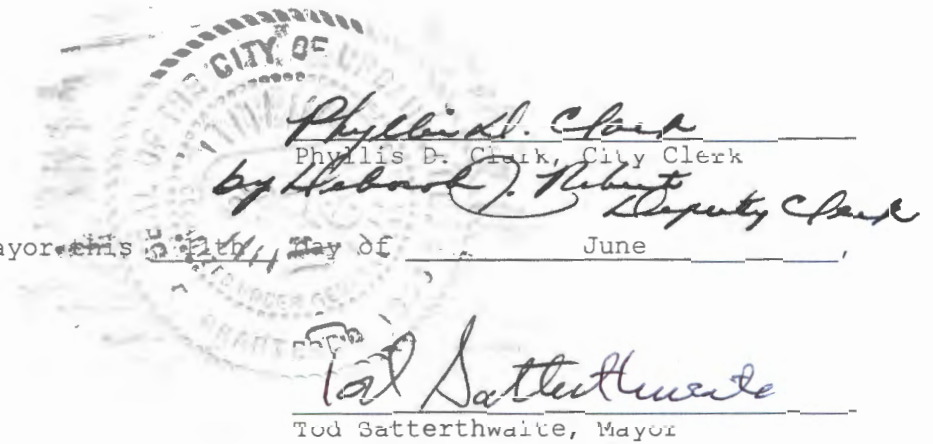 CITY OF
Phyllis D. Clark
Phyllis D. Clark, City Clerk
by Deborah J. Roberts
Deputy Clerk
ayor this 11th day of June ,
Tod Satterthwaite
Tod Satterthwaite, Mayor